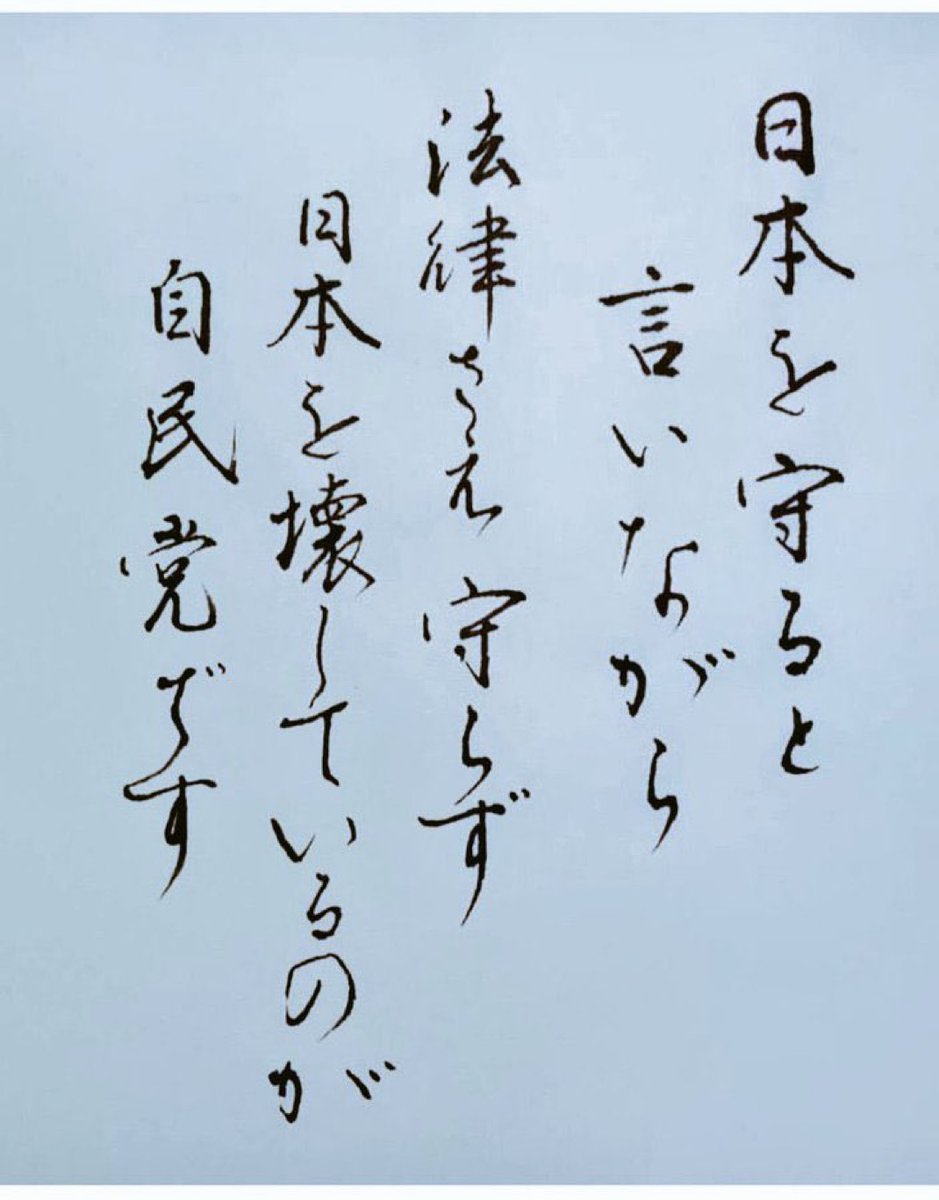 日本を守ると
言いながら
法律さえ守らず
日本を壊しているのが
自民党です